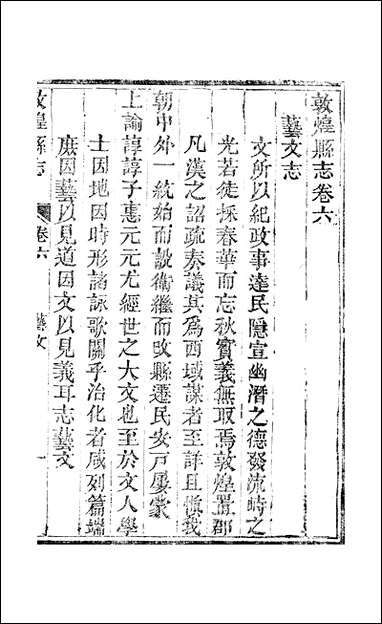 敦煌縣志卷六
藝文志
文所以紀政事達民隱宣幽潛之德發流時之
光若徒採春華而忘秋實義無取焉敦煌置郡
凡漢之詔疏奏議其為西域謀者至詳且慎我
朝中外一統始而設衛繼而改縣遷民安戶屢蒙
上諭諄諄子惠元元尤經世之大文也至於文人學
士因地因時形諸詠歌關乎治化者咸列篇端
庶因藝以見道因文以見義耳志藝文
敦煌縣志
卷六
藝文
一